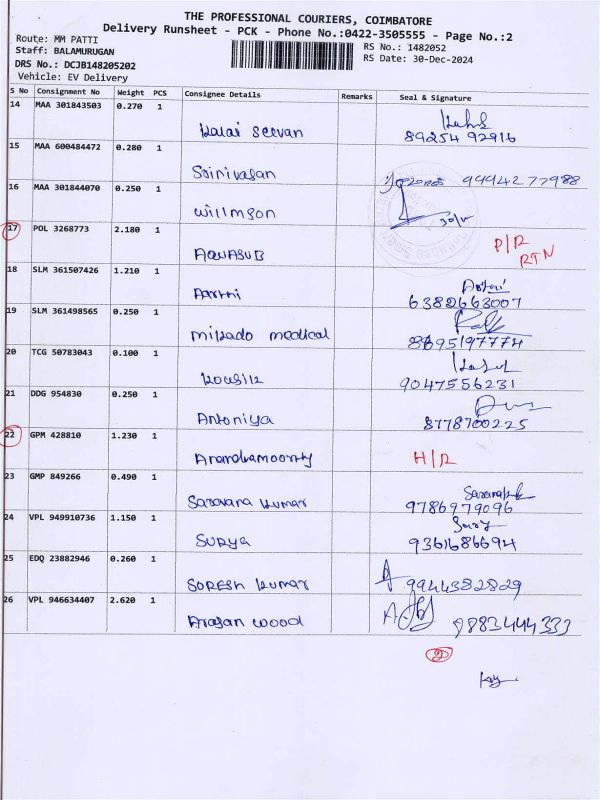 THE PROFESSIONAL COURIERS, COIMBATORE
Delivery Runsheet - PCK - Phone No.:0422-3505555 - Page No.:2
Route: MM PATTI
RS No.: 1482052
Staff: BALAMURUGAN
RS Date: 30-Dec-2024
DRS No.: DCJB148205202
Vehicle: EV Delivery
S No Consignment No Weight PCS Consignee Details Remarks Seal & Signature
14 MAA 301843503 0.270 1
Kalai Selvan 89254 92916
15 MAA 600484472 0.280 1
Srinivasan 99942 77988
16 MAA 301844070 0.250 1
Willmson
17 POL 3268773 2.180 1
AQUASUB P/R
RTN
18 SLM 361507426 1.210 1
Aarthi 6382663007
19 SLM 361498565 0.250 1
Mikado medical 8695197774
20 TCG 50783043 0.100 1
9047556231
21 DDG 954830 0.250 1
Antoniya 8778700225
22 GPM 428810 1.230 1
Anandhamoorthy H/R
23 GMP 849266 0.490 1
Saravana kumar 9786979096
24 VPL 949910736 1.150 1
Surya 9361686694
25 EDQ 23882946 0.260 1
Suresh kumar 9944382829
26 VPL 946634407 2.620 1
Arasan wood 9883444333
2